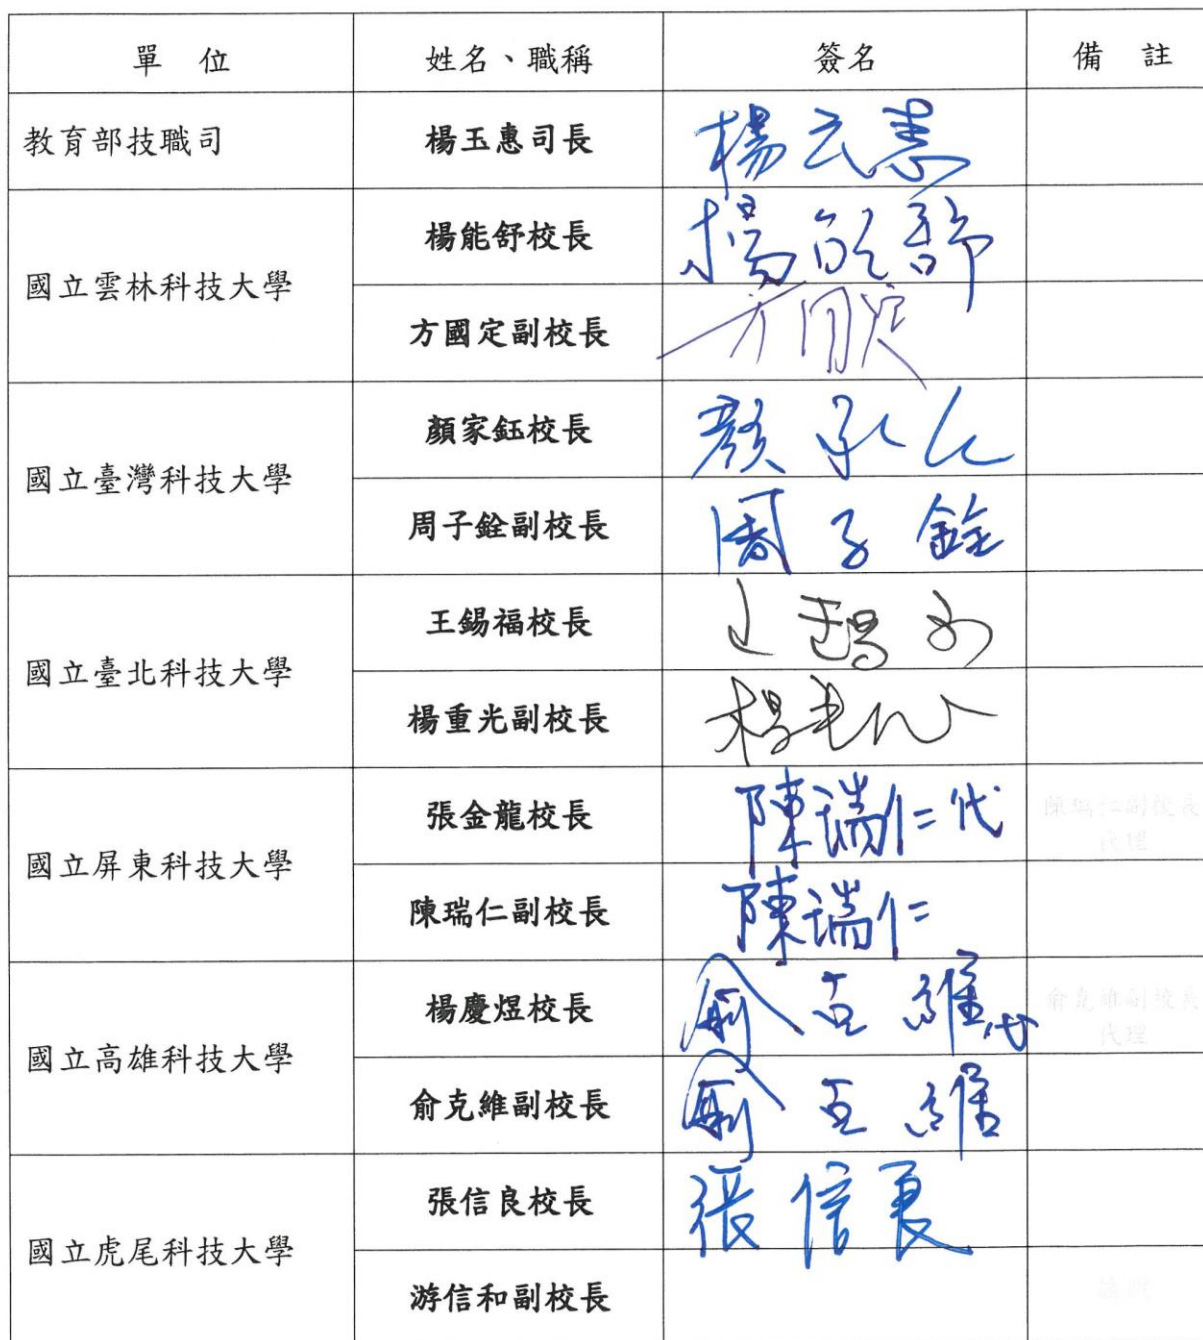 單 位 姓名、職稱 簽名 備 註
教育部技職司 楊玉惠司長 楊玉惠
國立雲林科技大學
楊能舒校長 楊能舒
方國定副校長 方國定
國立臺灣科技大學
顏家鈺校長
周子銓副校長 周子銓
國立臺北科技大學
王錫福校長
楊重光副校長
國立屏東科技大學
張金龍校長 陳瑞仁代 陳瑞仁副校長
代理
陳瑞仁副校長 陳瑞仁
國立高雄科技大學
楊慶煜校長 俞克維代 俞克維副校長
代理
俞克維副校長 俞克維
國立虎尾科技大學
張信良校長 張信良
游信和副校長